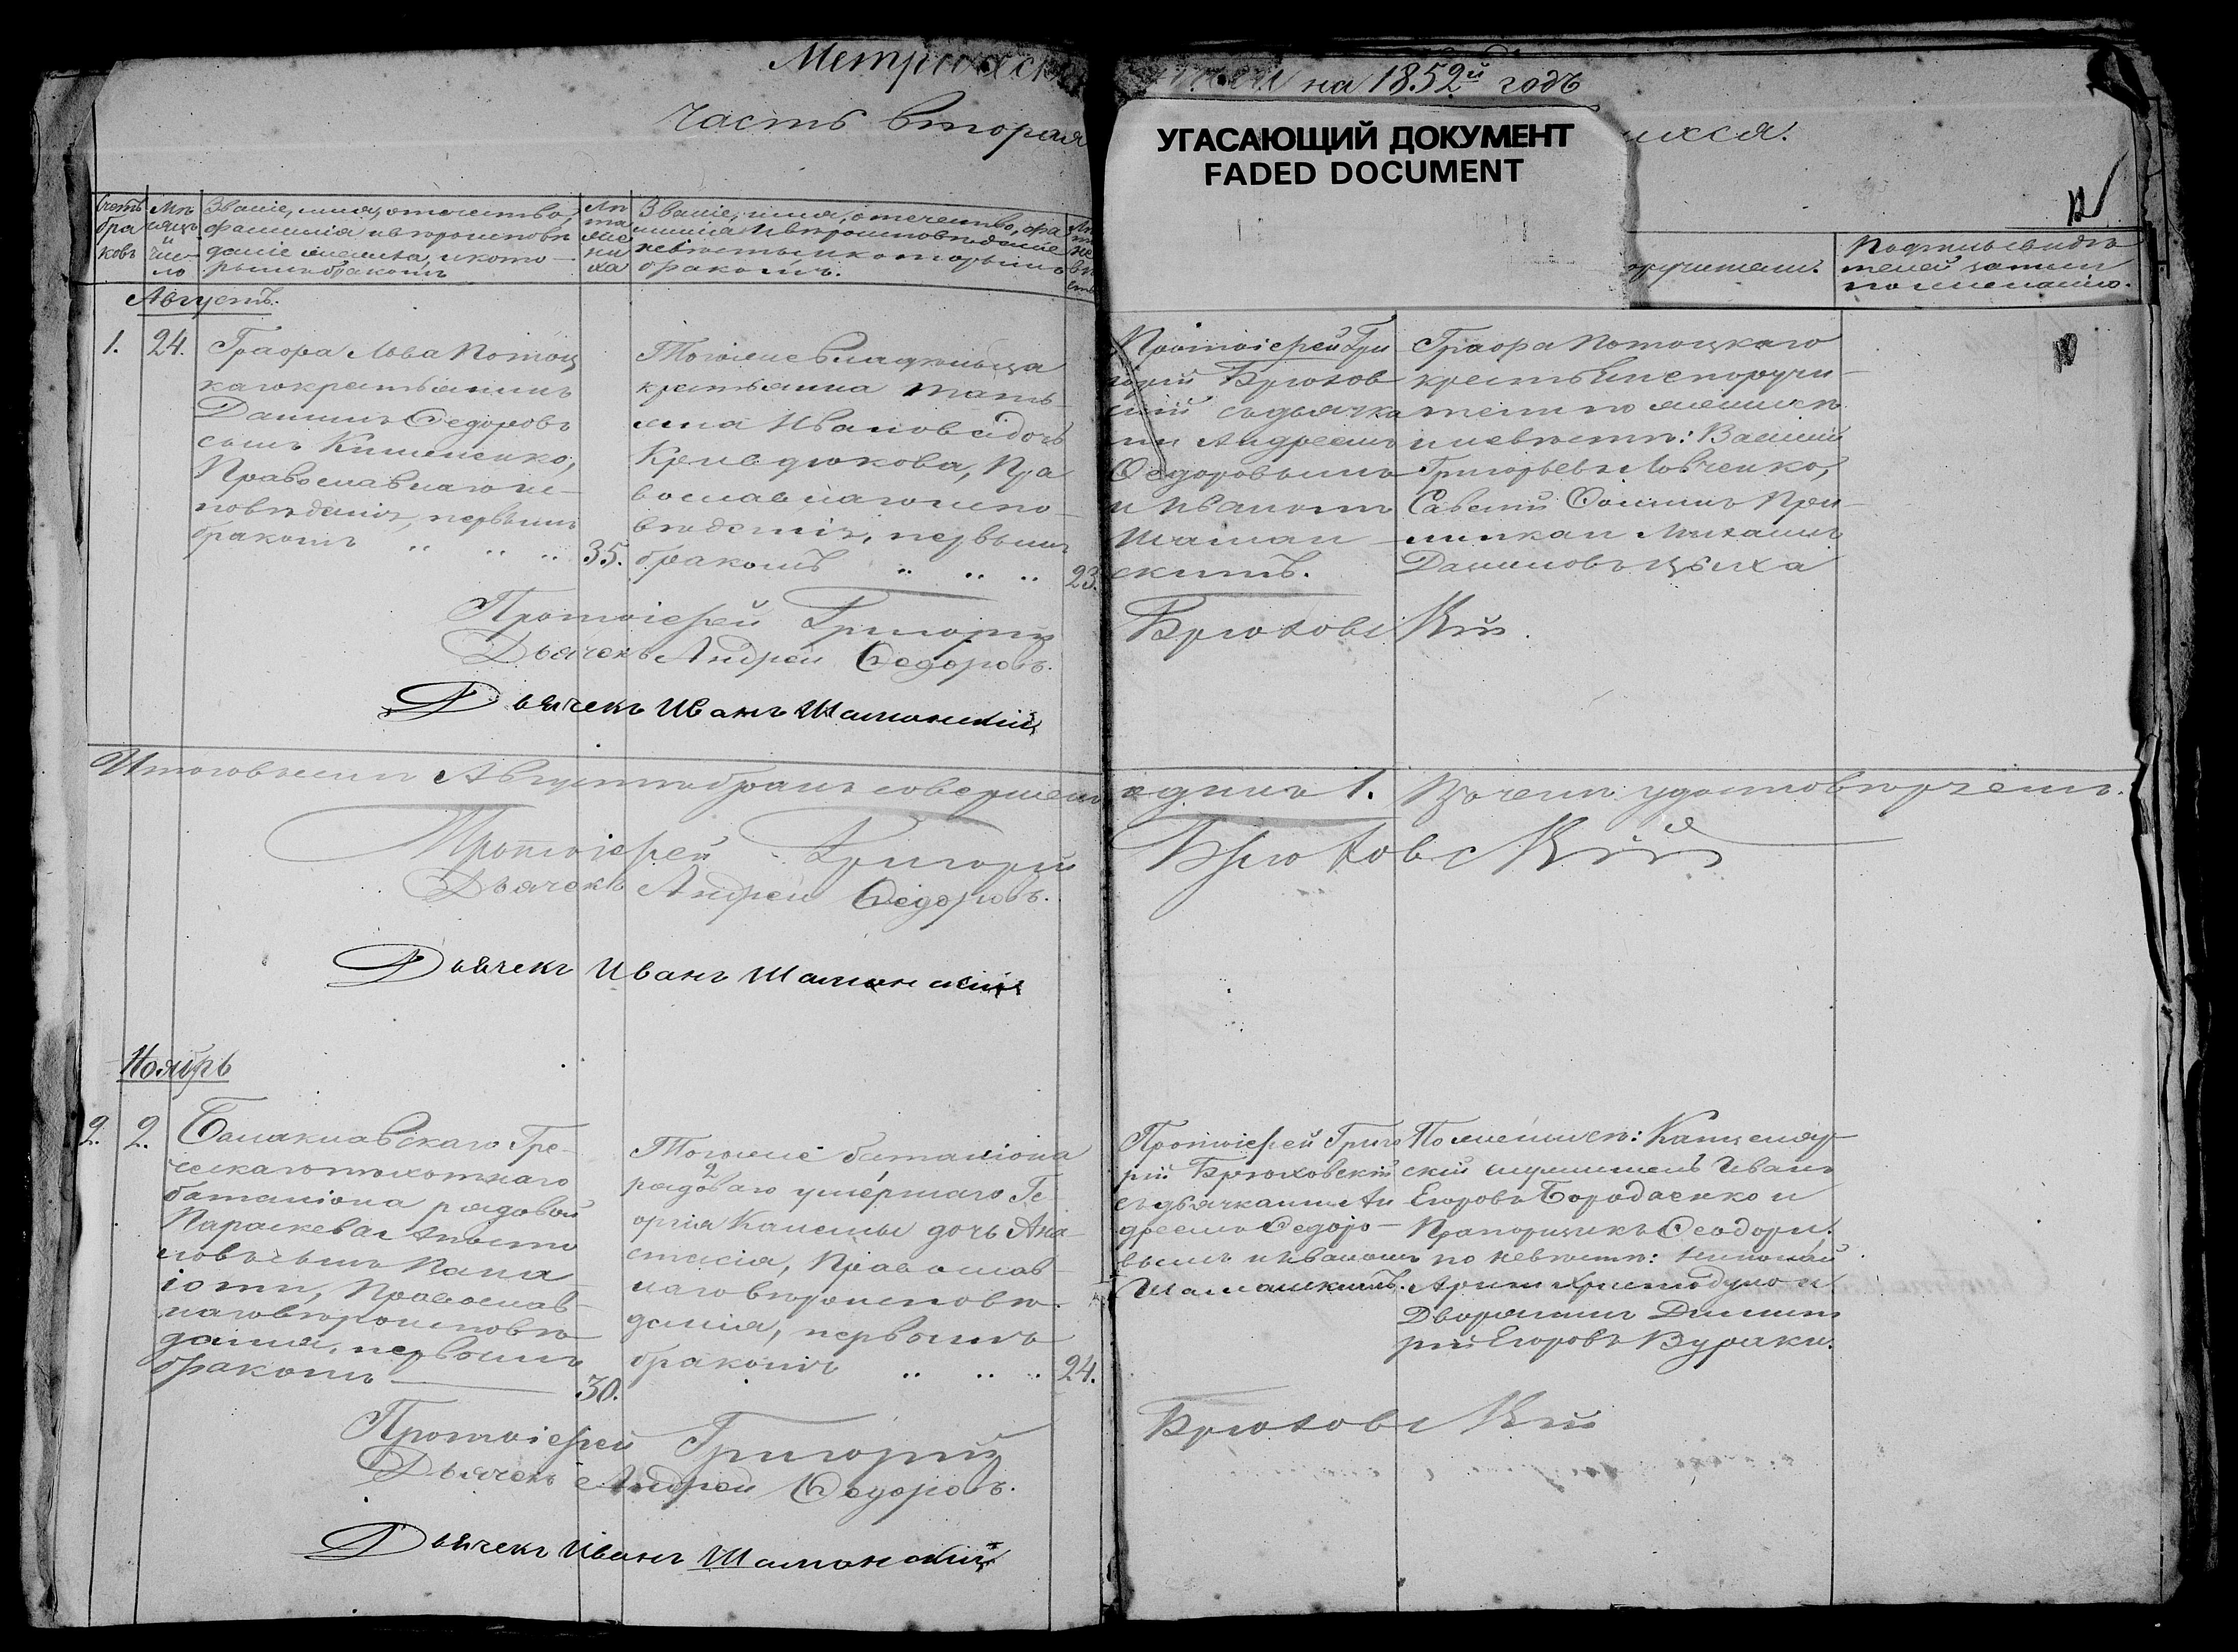 на 1852й годъ
часть вторая
УГАСАЮЩИЙ ДОКУМЕНТ
FADED DOCUMENT
ихся.
Счетъ браковъ
Мѣсяцъ и число
Званіе, имя, отчество,
фамилія и вѣроисповѣ
даніе жениха, и кото-
рымъ бракомъ
Лѣта жениха
Званіе, имя, отечество, фа
милія и вѣроисповѣданіе
невѣсты и которымъ
бракомъ.
поручители.
Подпись свидѣ
телей записи
по желанію.
Августъ.
1.
24.
Графа Льва Потоц
каго крестьянинъ
Даніилъ Ѳедоровъ
сынъ Кишненко,
Православнаго ис-
повѣданія, первымъ
бракомъ
35.
Тогоже владѣльца
крестьянка Тать-
яна Иванова дочь
Пра
вославнаго испо-
вѣданія, первымъ
бракомъ
23.
Протоіерей Гри
горій Брюхов
скій съ дьячка
ми Андреемъ
Ѳедоровымъ
и Иваномъ
Шаман-
скимъ.
Графа Потоцкаго
крестьяне поручи-
тели по женихѣ
и невѣстѣ: Василій
Григорьевъ Левченко,
Савелій Фоминъ При-
липка и Михаилъ
Даниловъ Цыха
Протоіерей Григорій Брюховскій.
Дьячекъ Андрей Ѳедоровъ.
Дьячекъ Иванъ Шаманскій
Итого въ семъ Августѣ бракъ совершенъ одинъ 1. В чемъ удостовѣряемъ.
Протоіерей Григорій Брюховскій
Дьячекъ Андрей Ѳедоровъ.
Дьячекъ Иванъ Шаманскій
Ноябрь
2.
2.
Балаклавскаго Гре-
ческаго пѣхотнаго
баталіона рядовой
Параскева Апосто
ловъ сынъ Пана
іоти, Православ-
наго вѣроисповѣ
данія, первымъ
бракомъ
30.
Тогоже баталіона
рядоваго умершаго Ге
оргія дочь Ана-
стасія, Православ-
наго вѣроисповѣ-
данія, первымъ
бракомъ
24.
Протоіерей Григо
рій Брюховскій
съ дьячками Ан
дреемъ Ѳедоро-
вымъ и Иваномъ
Шаманскимъ.
По женихѣ: Канцеляр-
скій служитель Иванъ
Егоровъ Бородаенко и
Прапорщикъ Ѳеодори.
по невѣстѣ: Николай
Христодуло и
Дворянинъ Димит
рій Егоровъ Вураки.
Протоіерей Григорій Брюховскій
Дьячекъ Андрей Ѳедоровъ.
Дьячекъ Иванъ Шаманскій